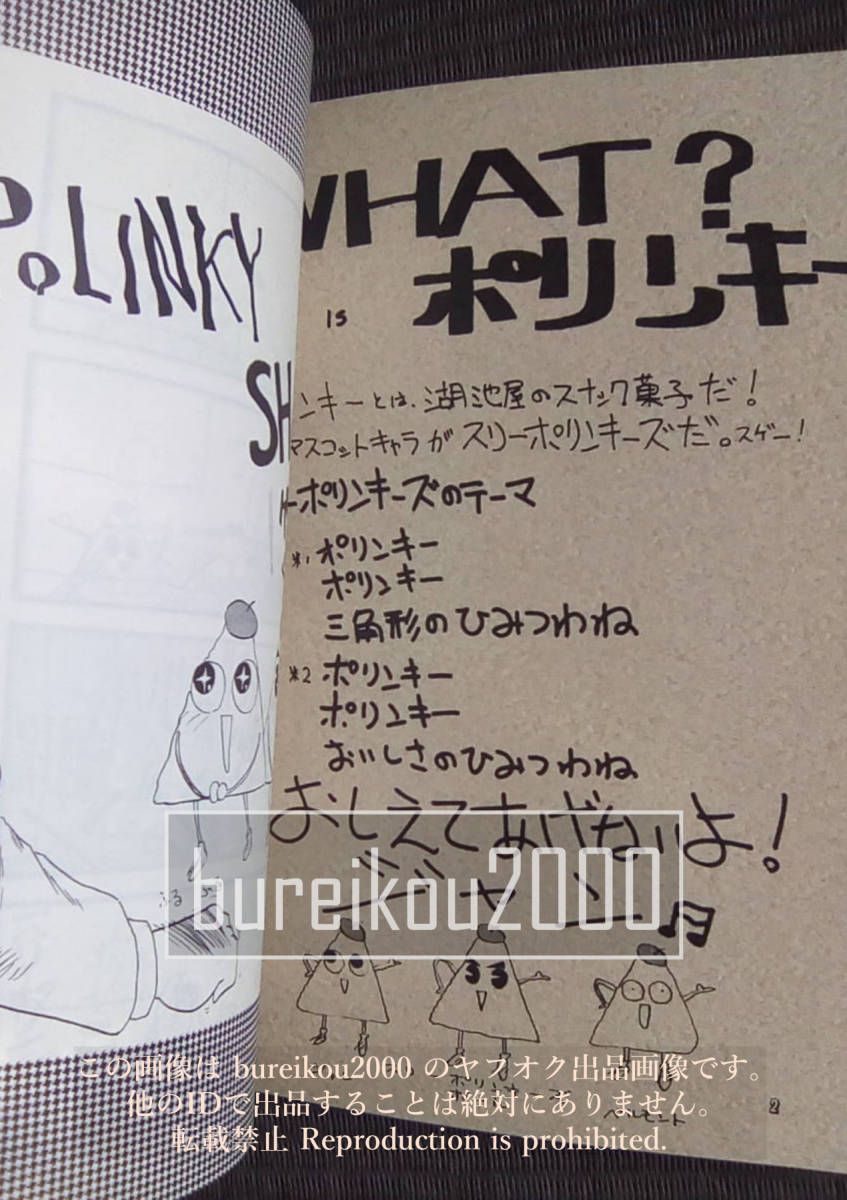 PoLINKY
SH
WHAT?
is ポリンキー
ンキーとは、湖池屋のスナック菓子だ!
マスコットキャラがスリーポリンキーズだ。スゲー!
ーポリンキーズのテーマ
※1 ポリンキー
ポリンキー
三角形のひみつわね
※2 ポリンキー
ポリンキー
おいしさのひみつわね
おしえてあげないよ!
ジャン♫
bureikou2000
この画像は bureikou2000 のヤフオク出品画像です。
他のIDで出品することは絶対にありません。
転載禁止 Reproduction is prohibited.
2